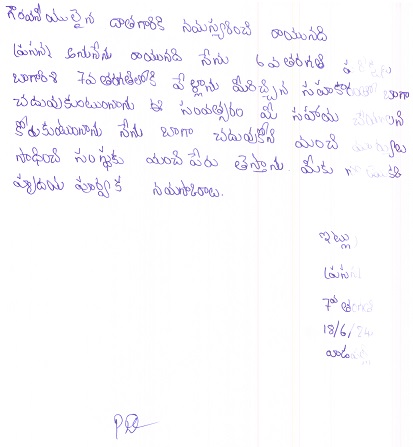 గౌరవనీయులైన దాతగారికి నమస్కరించి రాయునది
ప్రసన్న అనునేను రాయునది నేను 6వ తరగతి
బాగారాసి 7వ తరగతిలోకి వెళ్లాను మీరిచ్చిన సహకారంతో బాగా
చదువుకుంటున్నాను ఈ సంవత్సరం మీ సహాయ
కోరుకుంటున్నాను నేను బాగా చదువుకోని మంచి
సాధించి సంస్థకు మంచి పేరు తెస్తాను. మీకు నా
హృదయ పూర్వక నమస్కారాలు.
ఇట్లు
ప్రసన్న
7వ తరగతి
18/6/24